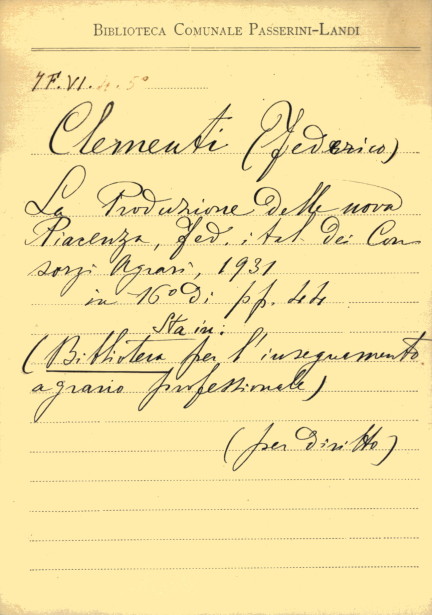 BIBLIOTECA COMUNALE PASSERINI-LANDI
7F.VI. 4. 5°
Clementi (Federico)
La Produzione delle uova
Piacenza, Fed. ital. dei Con
sorzi Agrari, 1931
in 16° di pp. 44
Sta in:
(Biblioteca per l'insegnamento
agrario professionale)
(per diritto)